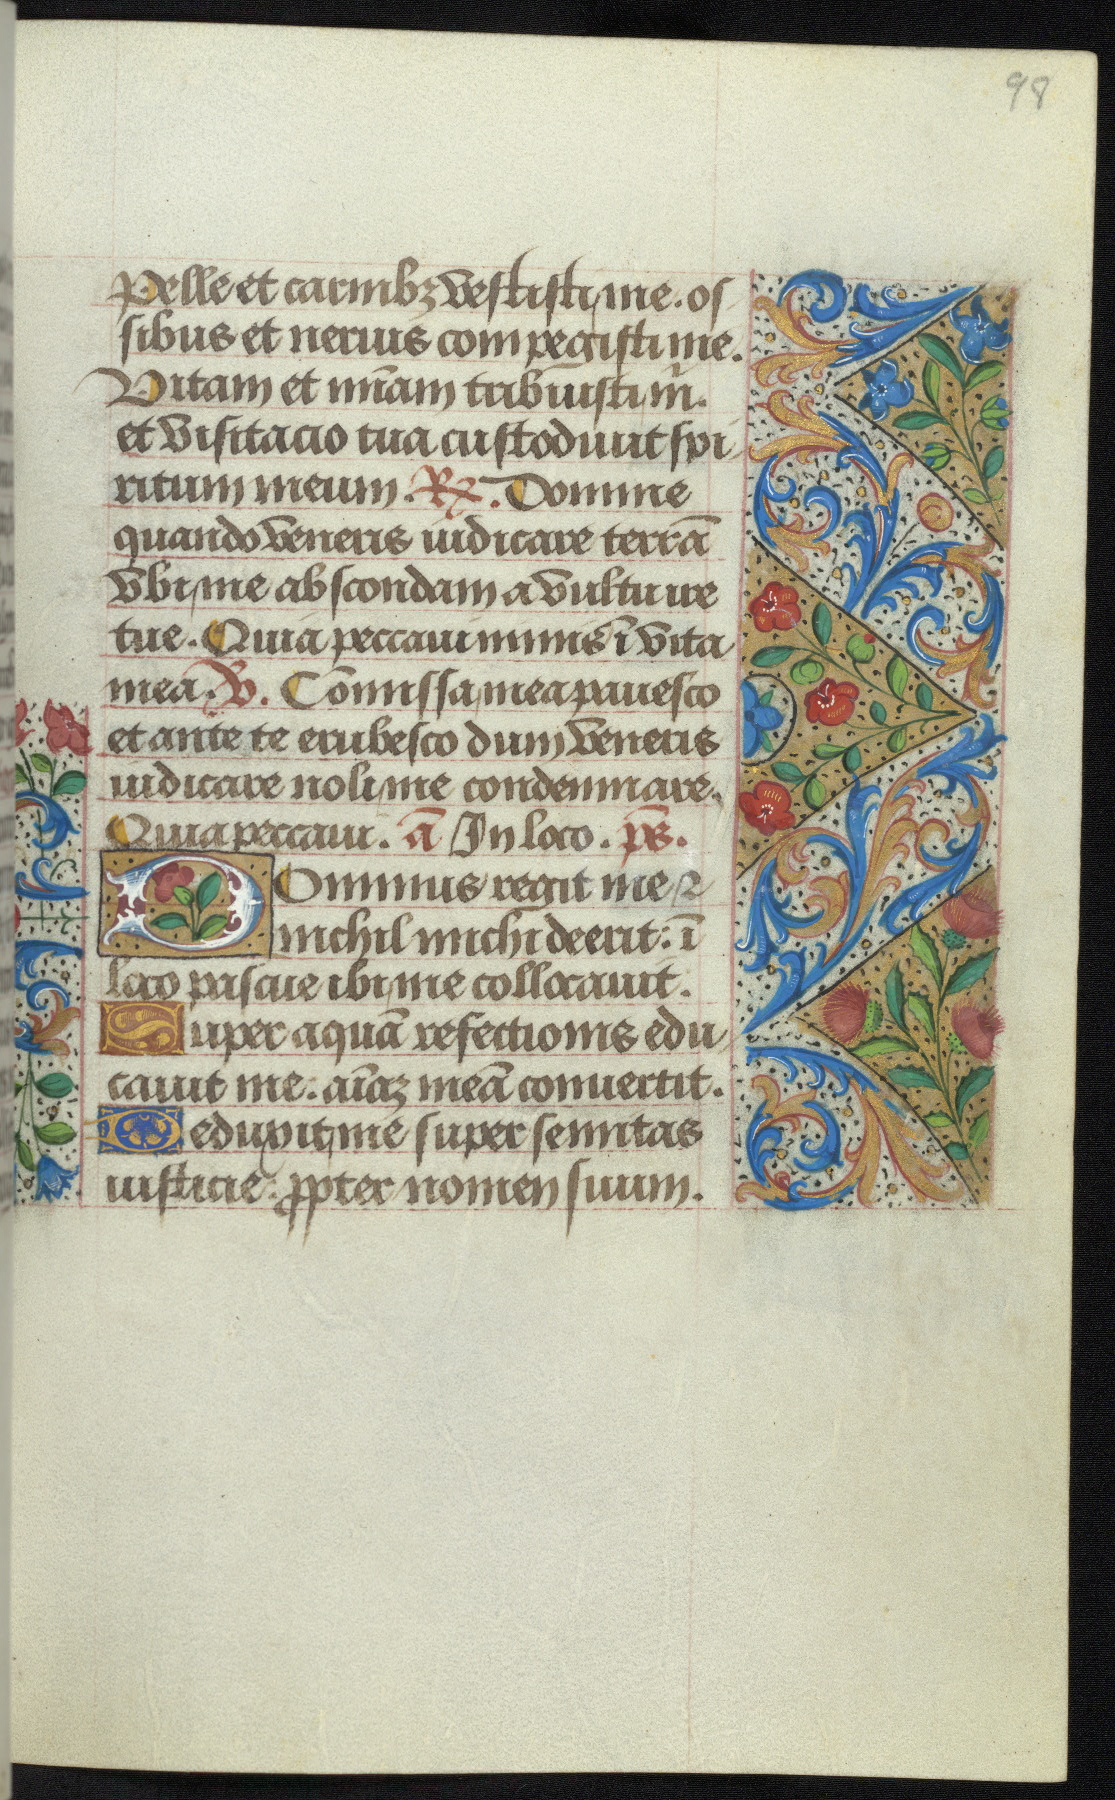 98
Pelle et carnibꝫ vestisti me. os
sibus et neruis compegisti me.
Vitam et mīam tribuisti m̄.
et visitacio tua custodiuit spi
ritum meum. R̷. Domine
quando veneris iudicare terrā
vbi me abscondam a vultu ire
tue. Quia peccaui nimis ī vita
mea. V̷. Cōmissa mea pauesco
et ante te erubesco dum veneris
iudicare noli me condemnare.
Quia peccaui. ā In loco. p̄s.
Dominus regit me ⁊
nichil michi deerit: ī
loco pascue ibi me collocauit.
Super aquā refectionis edu
cauit me: aīaꝫ meā conuertit.
Deduxit me super semitas
iusticie: ꝓpter nomen suum.